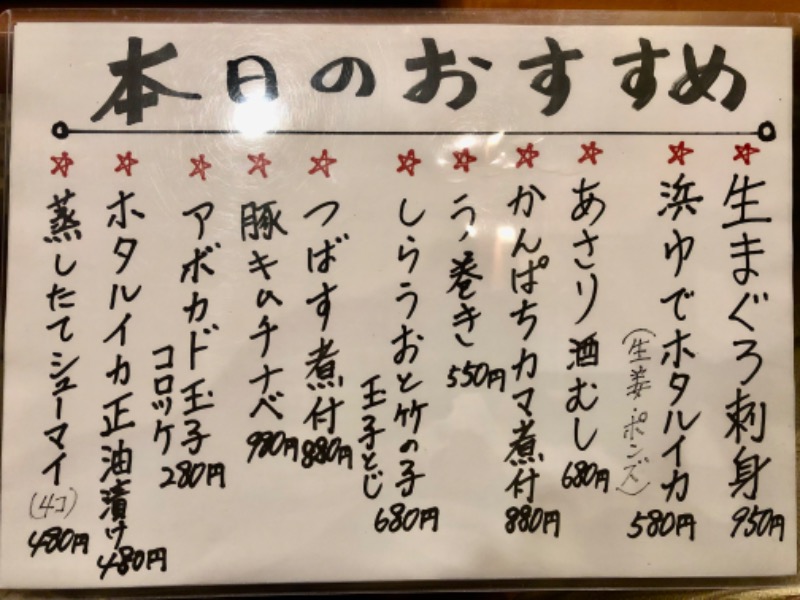 本日のおすすめ
☆生まぐろ刺身 950円
☆浜ゆでホタルイカ
(生姜・ポンズ) 580円
☆あさり酒むし 680円
☆かんぱちカマ煮付 880円
☆う巻き 550円
☆しらうおと竹の子
玉子とじ 680円
☆つばす煮付 880円
☆豚キムチナベ 980円
☆アボカド玉子
コロッケ 280円
☆ホタルイカ正油漬け 480円
☆蒸したてシューマイ(4コ) 480円